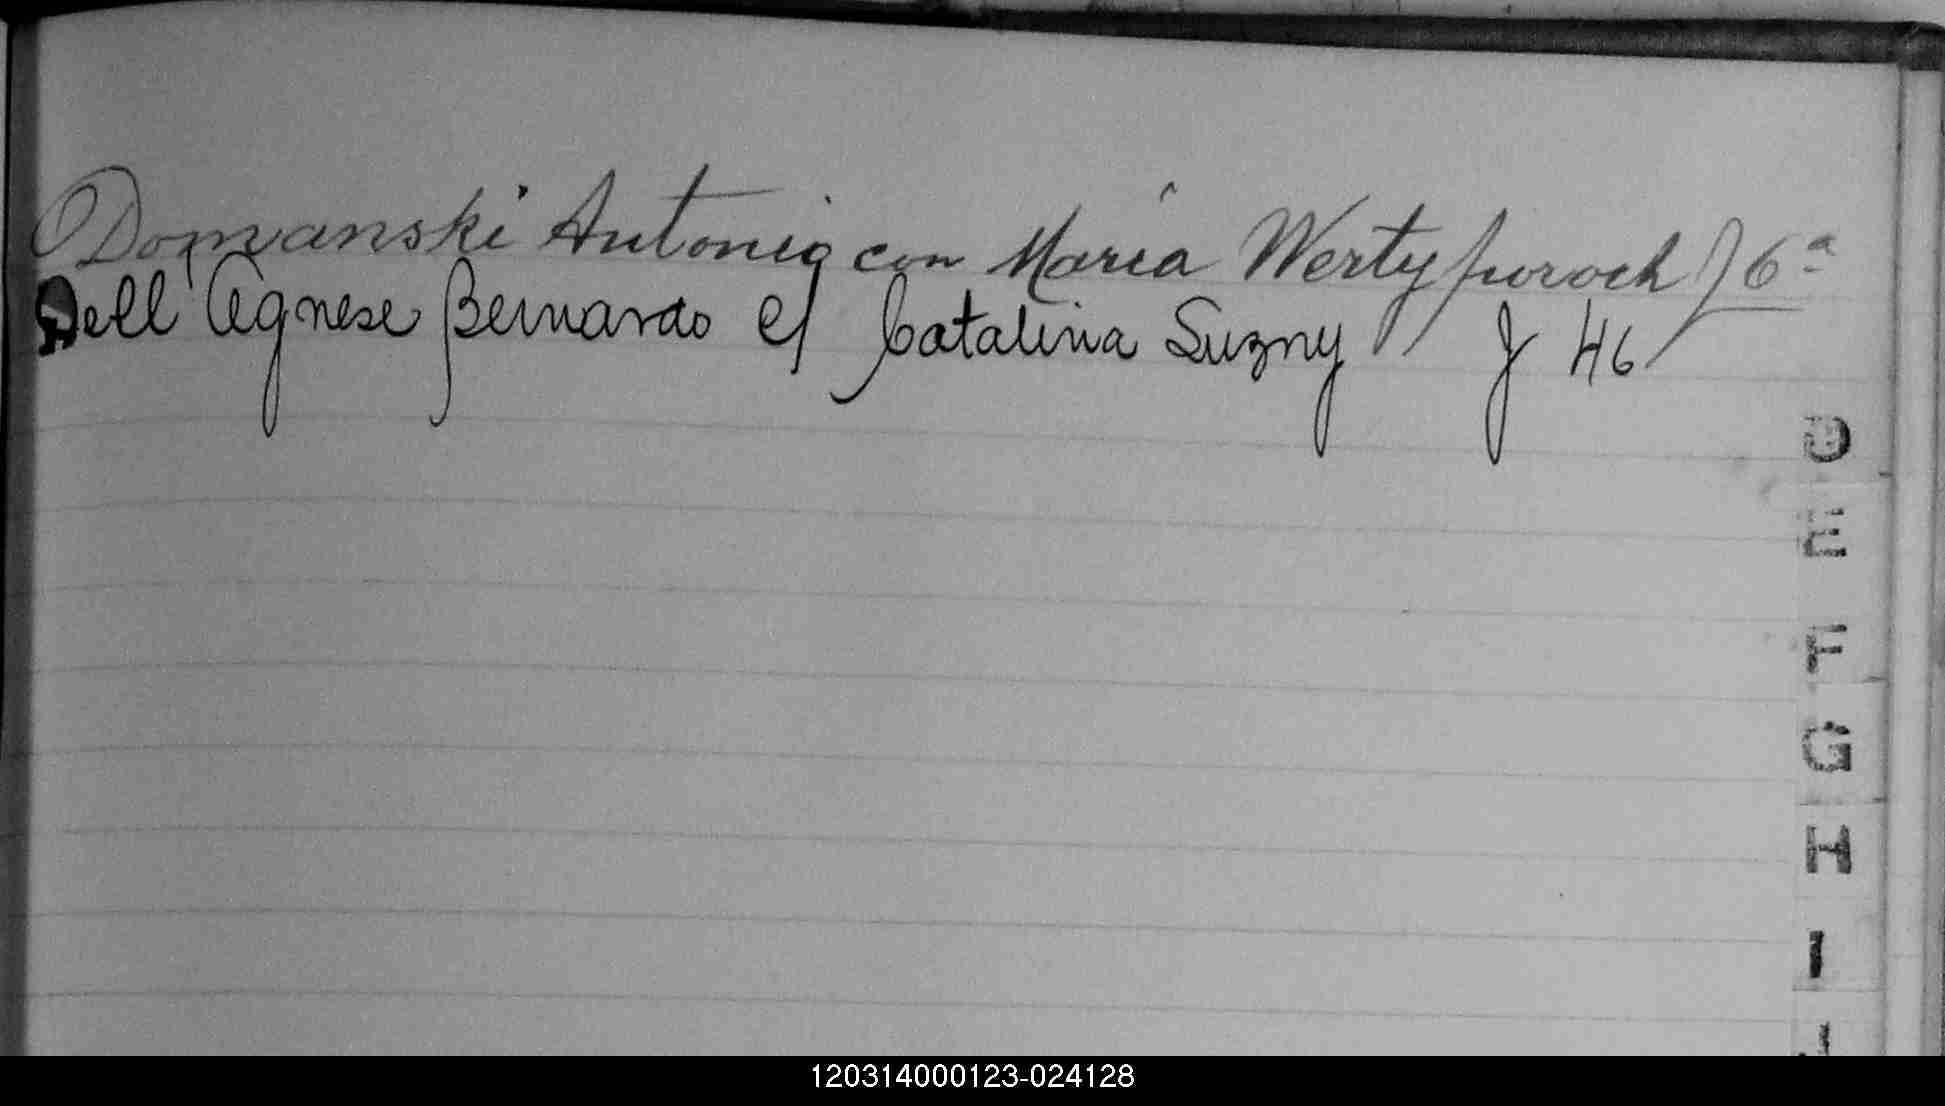 Domanski Antonio con María Wertyporoch f 6ª
Dell' Agnese Bernardo c/ Catalina Suzny f 46
D
E
F
G
H
I
J
120314000123-024128